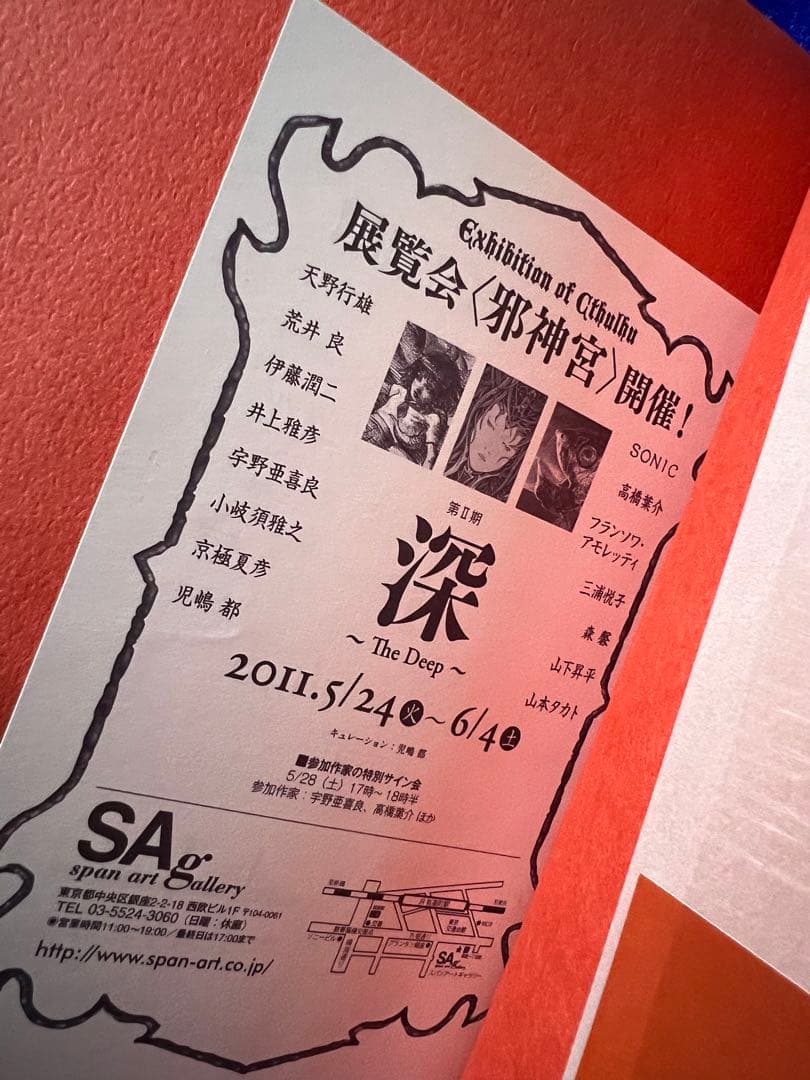 Exhibition of Cthulhu
展覧会〈邪神宮〉開催！
天野行雄
荒井 良
伊藤潤二
井上雅彦
宇野亜喜良
小岐須雅之
京極夏彦
児嶋 都
SONIC
高橋葉介
フランソワ・
アモレッティ
三浦悦子
森 馨
山下昇平
山本タカト
第Ⅱ期
深
～ The Deep ～
2011.5/24火～6/4土
キュレーション：児嶋 都
■参加作家の特別サイン会
5/28（土）17時～18時半
参加作家：宇野亜喜良、高橋葉介 ほか
SAg
span art gallery
東京都中央区銀座2-2-18 西欧ビル1F 〒104-0061
TEL 03-5524-3060（日曜：休廊）
※営業時間11:00～19:00／最終日は17:00まで
http://www.span-art.co.jp/
ソニービル
SAg
span art gallery
スパンアートギャラリー